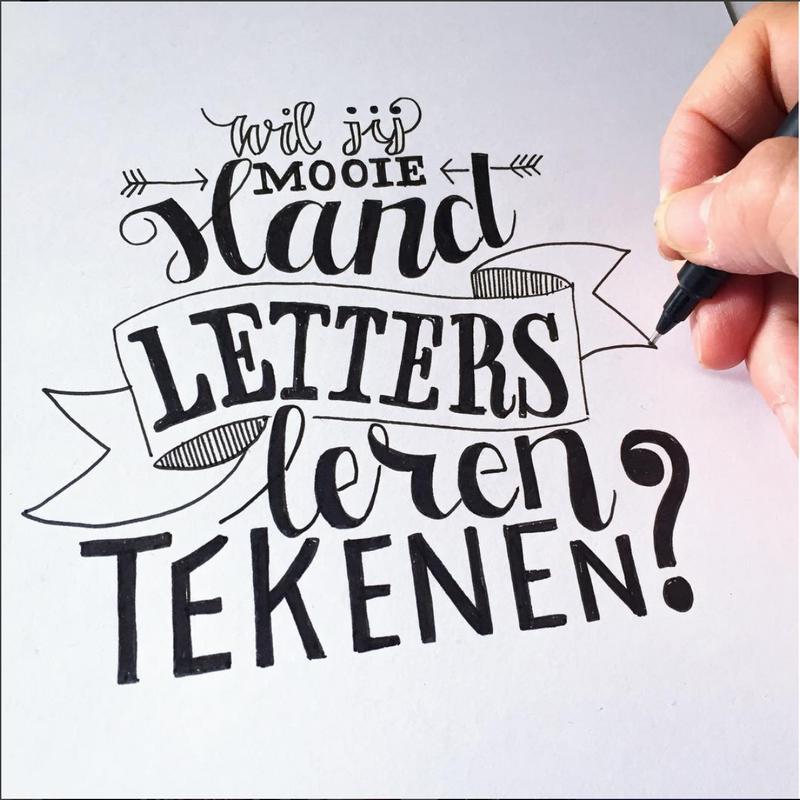 wil jij
MOOIE
Hand
LETTERS
leren
TEKENEN?